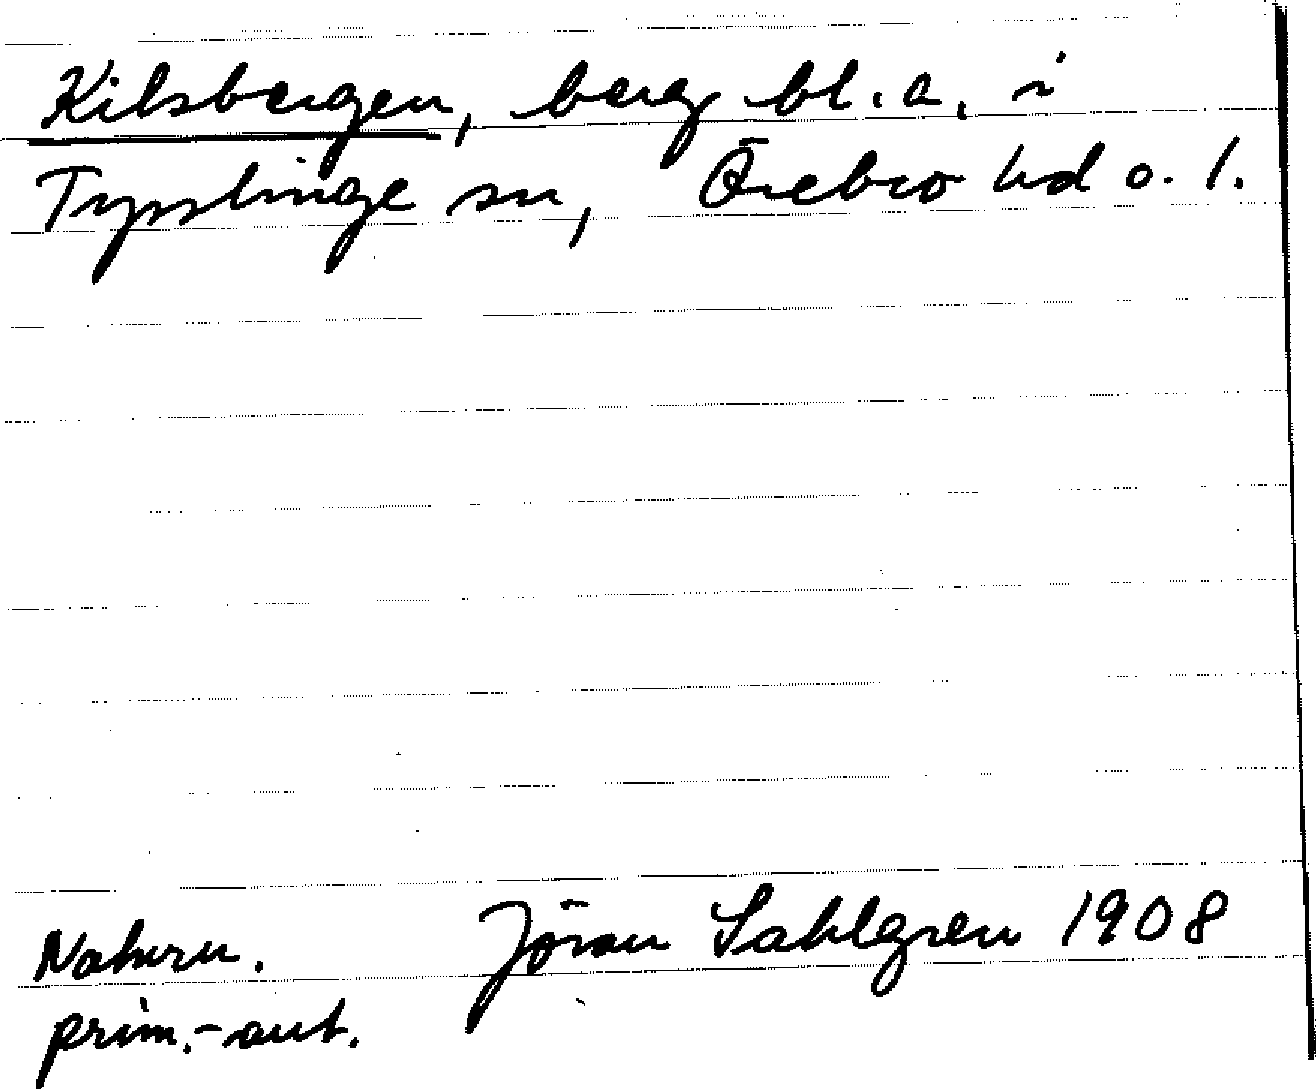 Kilsbergen, berg bl. a. i
Tysslinge sn, Örebro hd o. l.
Naturn. Jöran Sahlgren 1908
prim.-ant.